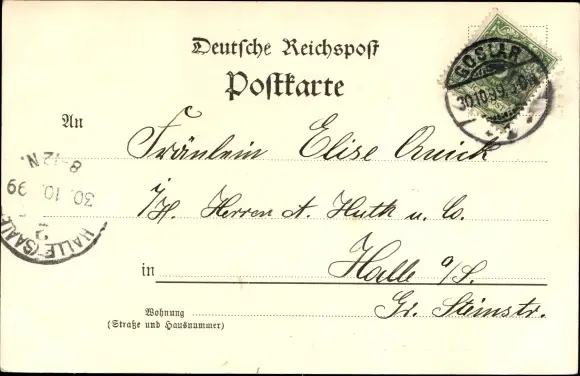 Deutsche Reichspost
Postkarte
GOSLAR
30.10.99.
An Fräulein Elise Quick
i/H. Herren A. Huth u. Co.
in Halle a/S.
Gr. Steinstr.
Wohnung
(Straße und Hausnummer)
HALLE (SAALE)
2
30. 10. 99
8-12 N.